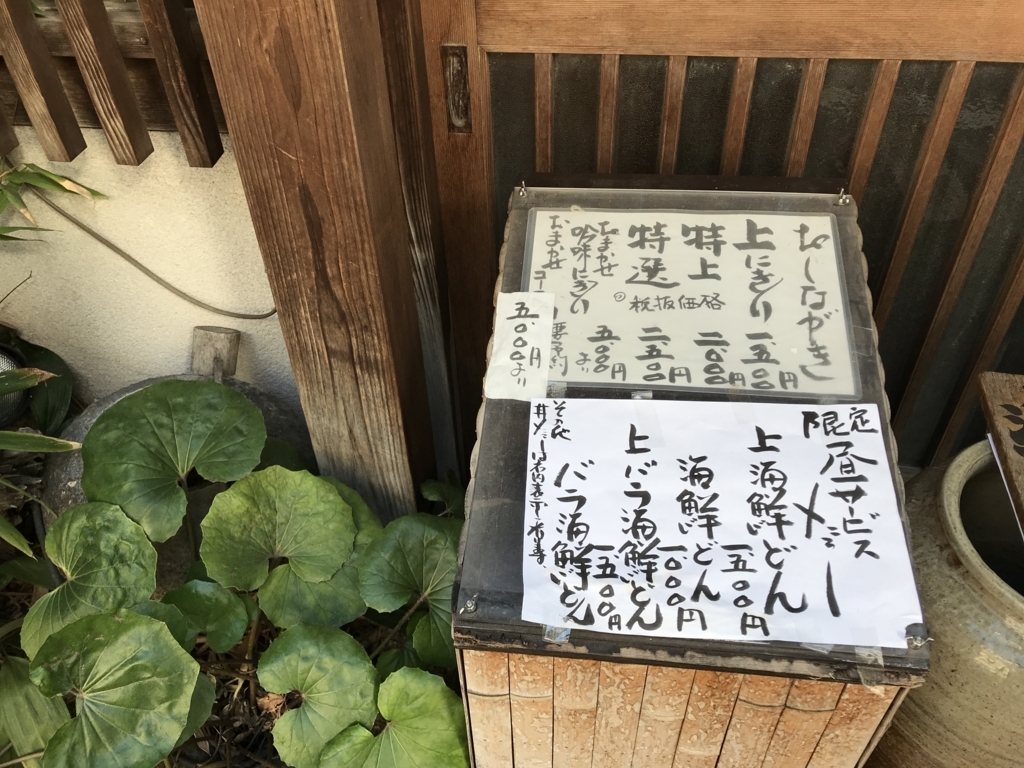 おしながき
上にぎり 一.五〇〇円
特上 二.〇〇〇円
特選 二.五〇〇円
税抜価格
おまかせ
吟味にぎり 五.〇〇〇円より
おまかせ
要予約
五.〇〇〇円より
限定
昼サービス
メニュー
上海鮮どん 一五〇〇円
海鮮どん 一〇〇〇円
上バラ海鮮どん
バラ海鮮どん 一五〇〇円
その他
丼メニューは店内表示し有り〼